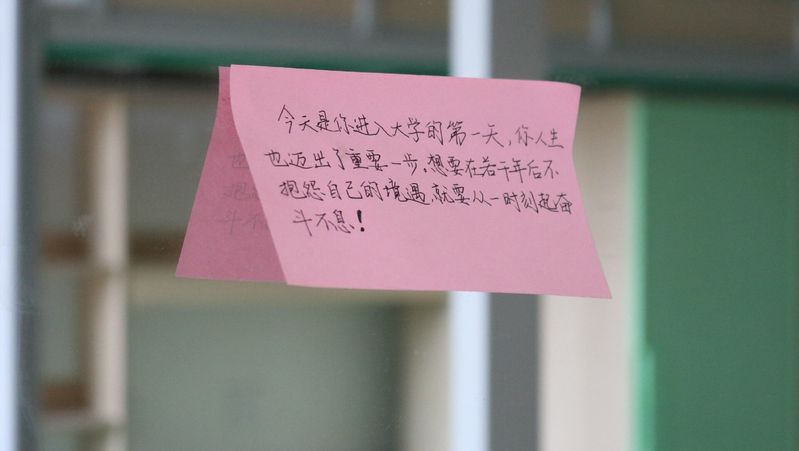 今天是你进入大学的第一天，你人生
也迈出了重要一步，想要在若干年后不
抱怨自己的境遇，就要从一时刻起奋
斗不息！